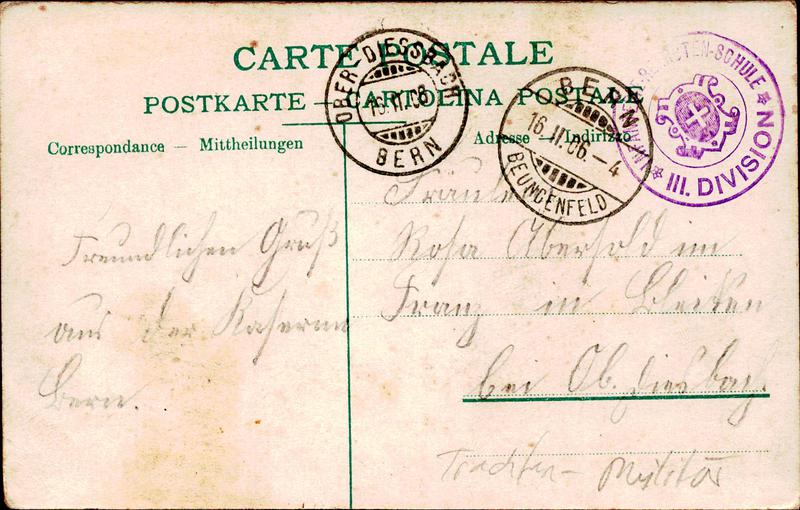 CARTE POSTALE
POSTKARTE — CARTOLINA POSTALE
Correspondance — Mittheilungen
Adresse — Indirizzo
OBER-DIESSBACH
16.II.06
BERN
BERN
16.II.06.—4
BEUNDENFELD
INFANTERIE-REKRUTEN-SCHULE
III. DIVISION
Freundlichen Gruß
aus der Kaserne
Bern.
Fräulein
Rosa Abersold im
Franz in Bleiken
bei Ob. Diesbach.
Trachten - Militär